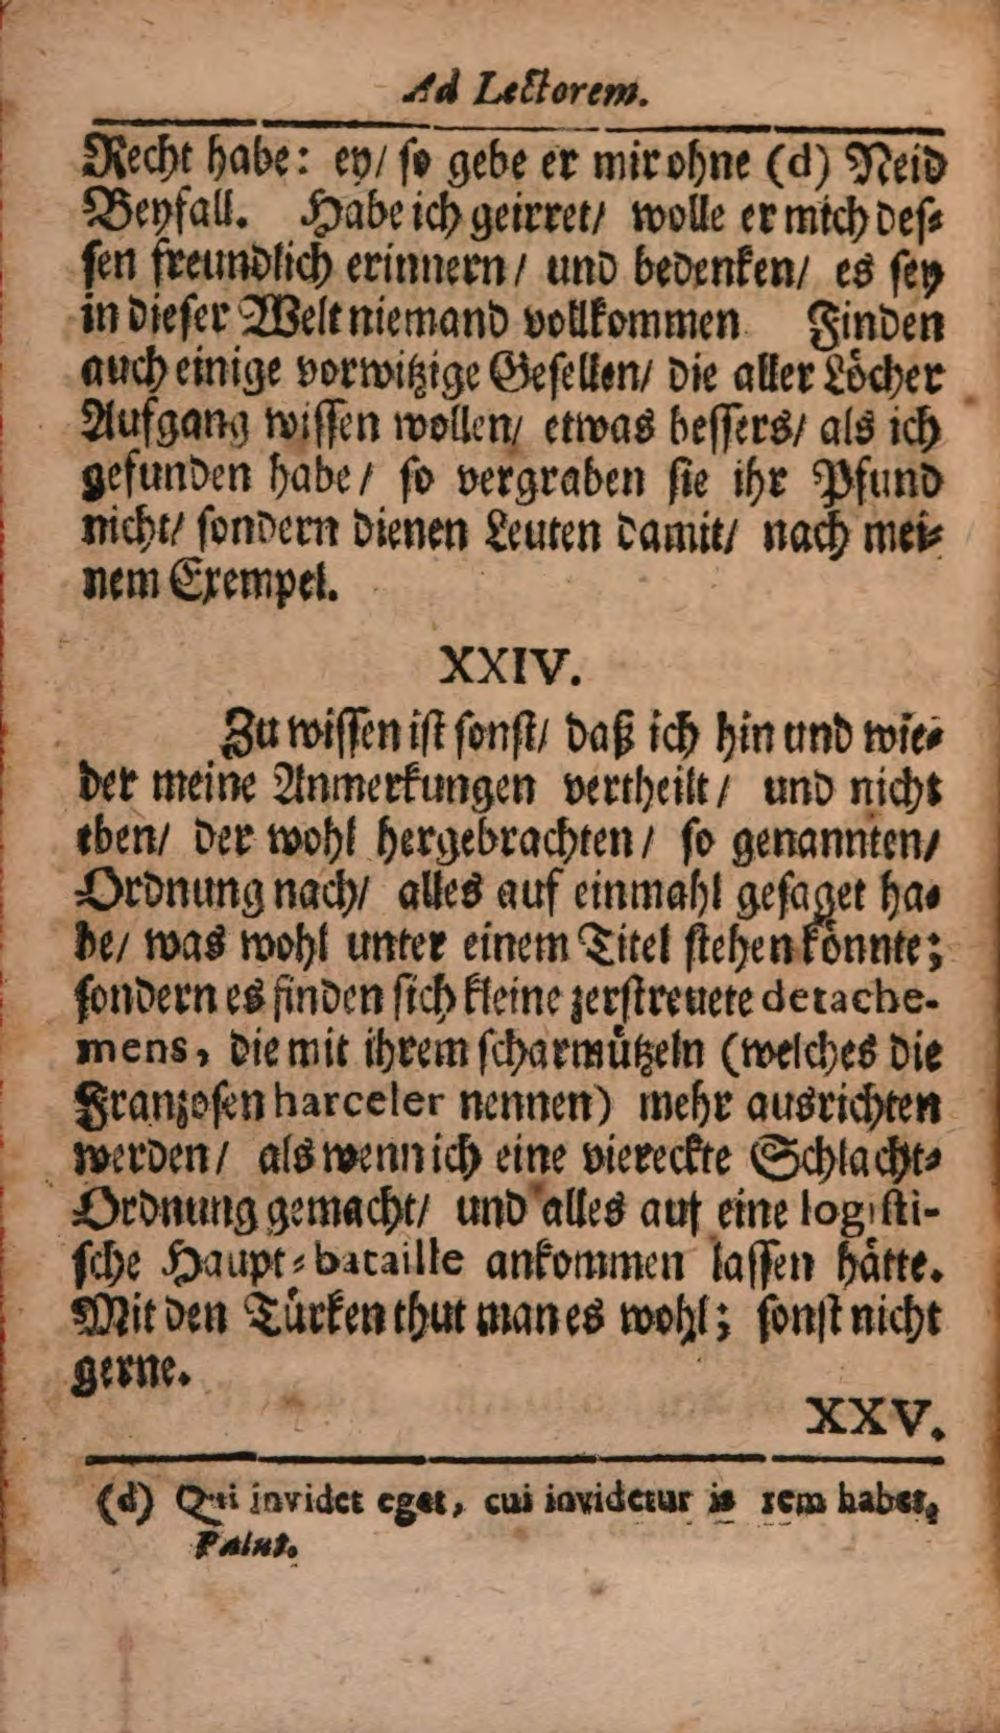 Ad Lectorem.
Recht habe: ey/ so gebe er mir ohne (d) Neid
Beyfall. Habe ich geirret/ wolle er mich des⸗
sen freundlich erinnern/ und bedenken/ es sey
in dieser Welt niemand vollkommen Finden
auch einige vorwitzige Gesellen/ die aller Löcher
Aufgang wissen wollen/ etwas bessers/ als ich
gefunden habe/ so vergraben sie ihr Pfund
nicht/ sondern dienen Leuten damit/ nach mei⸗
nem Exempel.
XXIV.
Zu wissen ist sonst/ daß ich hin und wie⸗
der meine Anmerkungen vertheilt/ und nicht
eben/ der wohl hergebrachten/ so genannten/
Ordnung nach/ alles auf einmahl gesaget ha⸗
be/ was wohl unter einem Titel stehen könnte;
sondern es finden sich kleine zerstreuete detache-
mens, die mit ihrem scharmützeln (welches die
Franzosen harceler nennen) mehr ausrichten
werden/ als wenn ich eine viereckte Schlacht⸗
Ordnung gemacht/ und alles auf eine logisti-
sche Haupt⸗bataille ankommen lassen hätte.
Mit den Türken thut man es wohl; sonst nicht
gerne.
XXV.
(d) Qui invidet eget, cui invidetur is rem habet,
Palut.